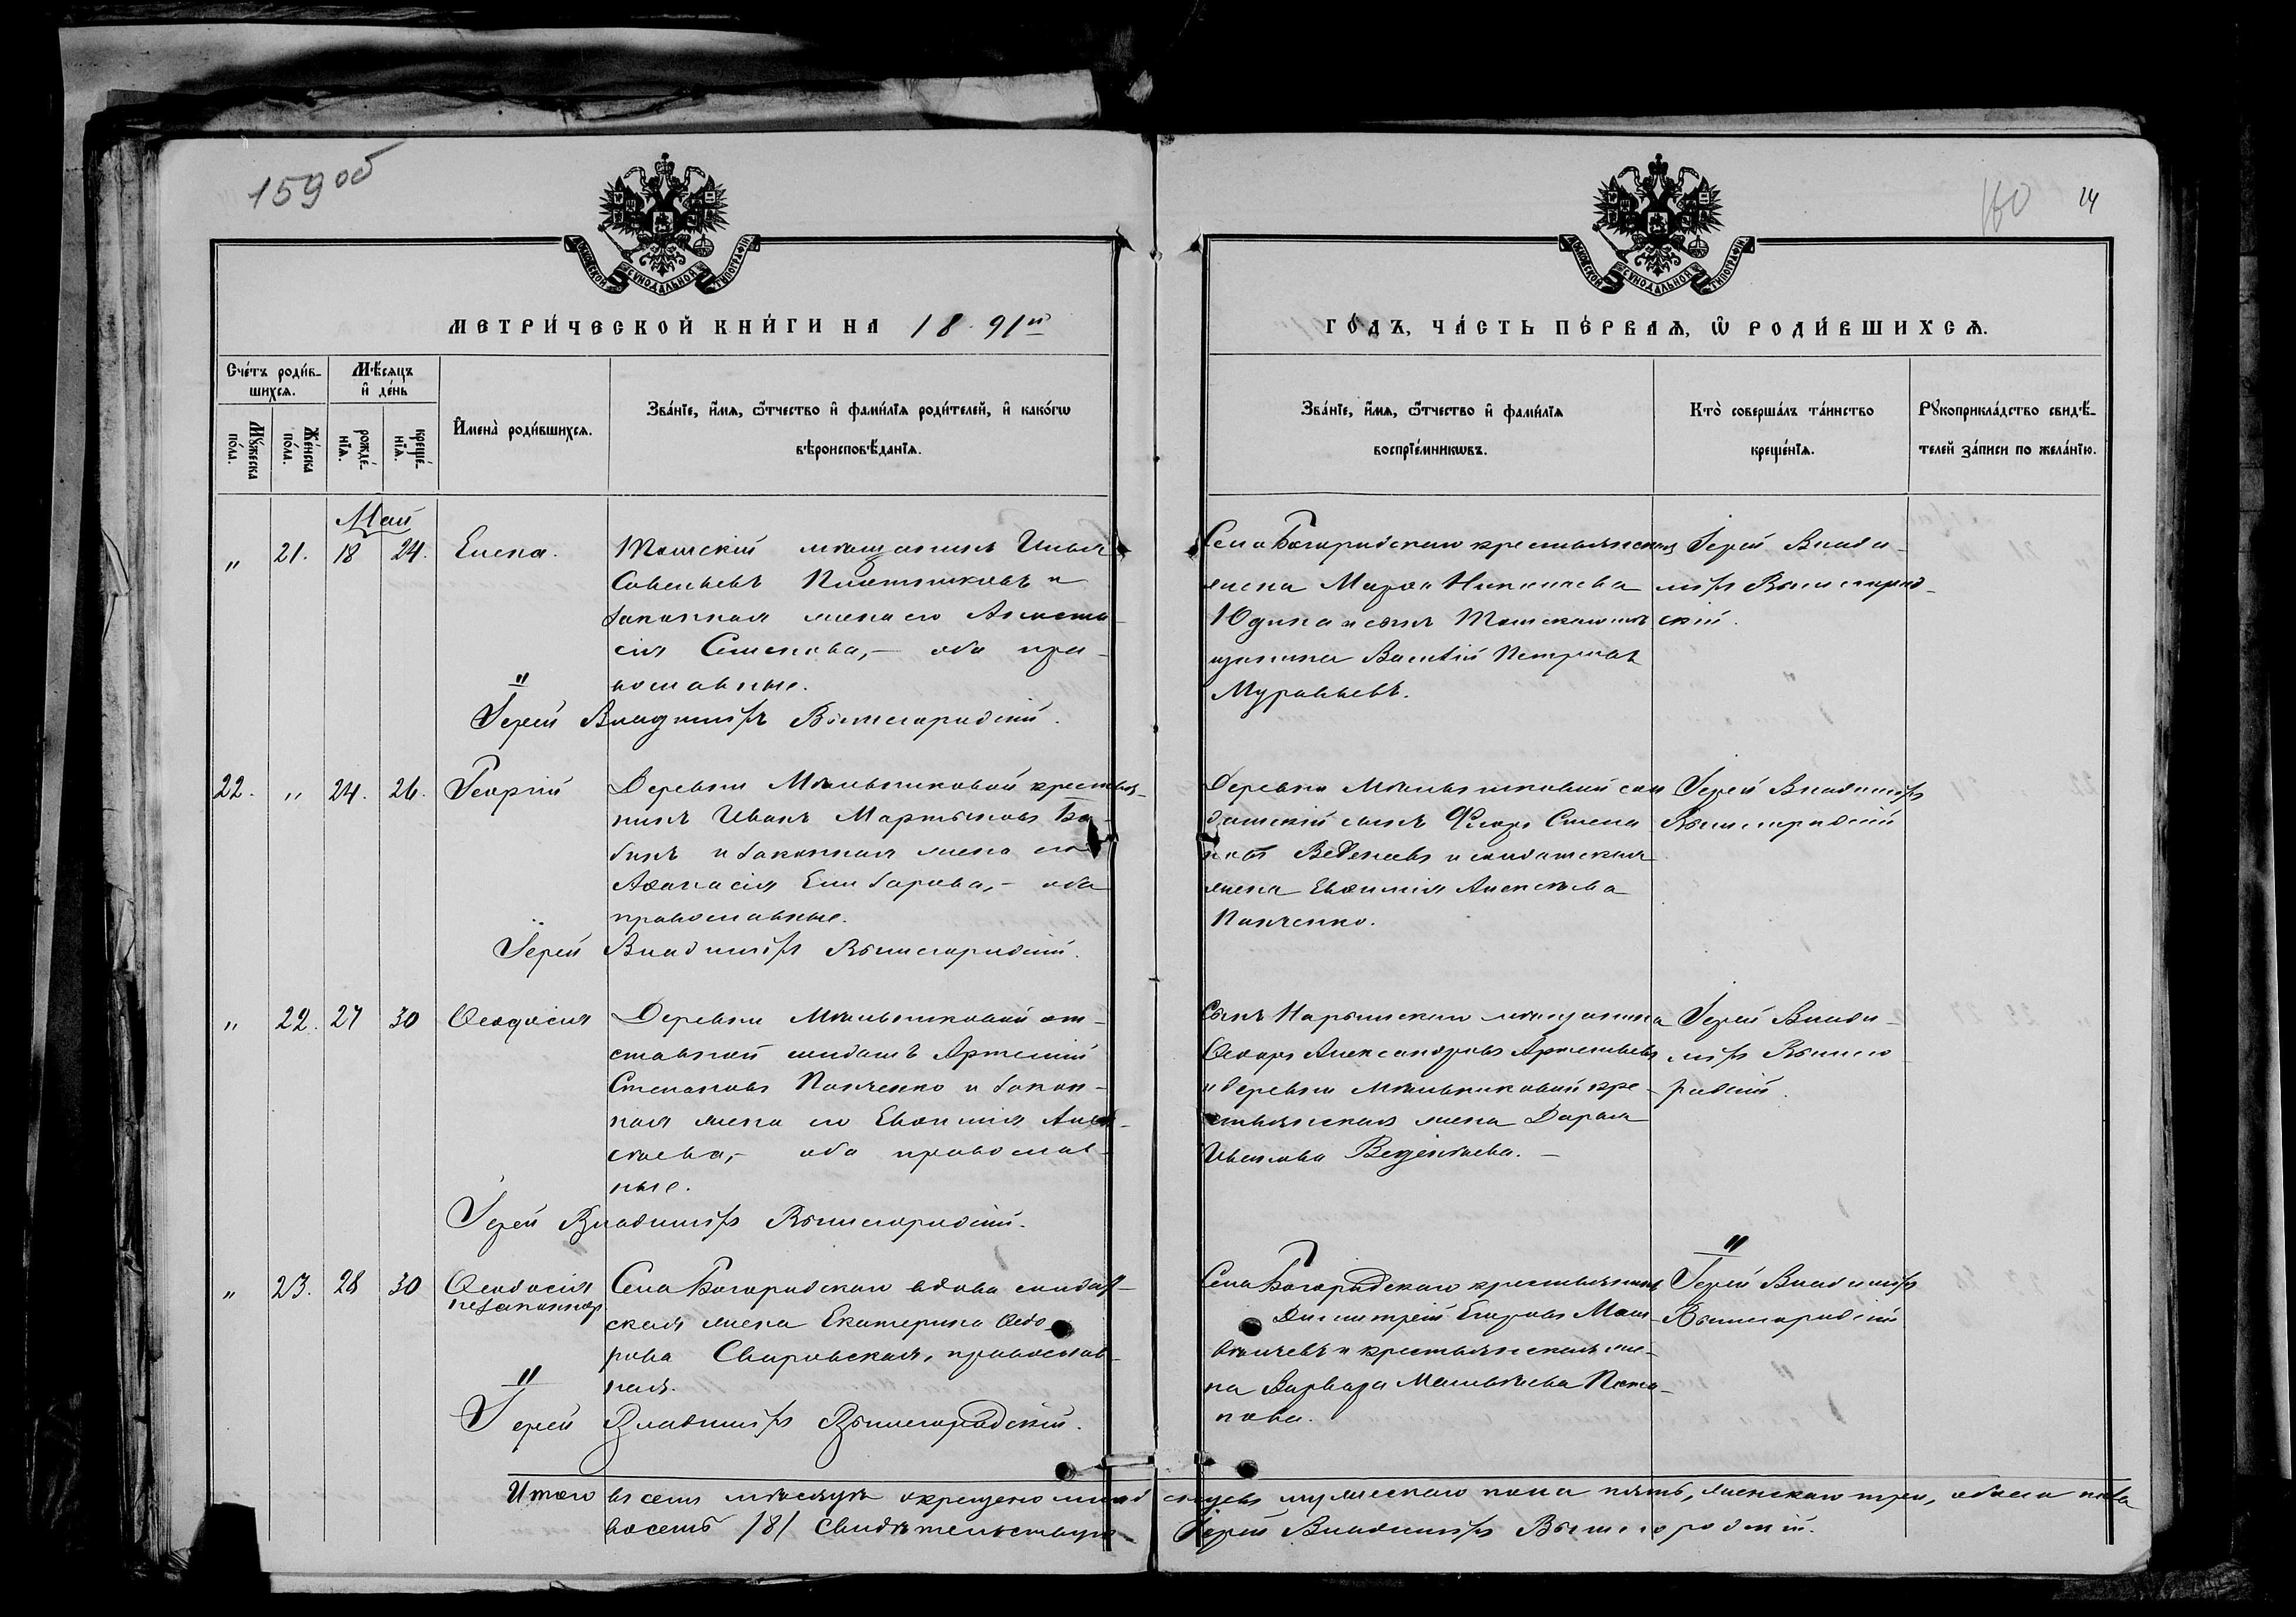 159 об
160 14
МОСКОВСКОЙ СѴНОДАЛЬНОЙ ТИПОГРАФІИ
МОСКОВСКОЙ СѴНОДАЛЬНОЙ ТИПОГРАФІИ
МЕТРИ́ЧЕСКОЙ КНИ́ГИ НА 1891й
ГО́ДЪ, ЧА́СТЬ ПЕ́РВАѦ, Ѡ҆ РОДИ́ВШИХСѦ.
Сче́тъ роди́в-
шихсѧ.
Мѣ́сѧцъ
и҆ де́нь
Мꙋ́жеска
по́ла.
Же́нска
по́ла.
рожде́-
нїѧ.
креще́-
нїѧ.
И҆мена̀ роди́вшихсѧ.
Зва́нїе, и҆́мѧ, ѻ҆́тчество и҆ фами́лїѧ роди́телей, и҆ како́гѡ
вѣроисповѣ́данїѧ.
Зва́нїе, и҆́мѧ, ѻ҆́тчество и҆ фами́лїѧ
воспрїе́мникѡвъ.
Кто̀ соверша́лъ та́инство
креще́нїѧ.
Рꙋкоприкла́дство свидѣ́-
телей за́писи по жела́нїю.
Май
" 21. 18 24. Елена.
Томскій мѣщанинъ Илья
Савельевъ Плотниковъ и
законная жена его Анаста-
сія Семенова, — оба пра-
вославные.
Іерей Владиміръ Вышегородскій.
Села Богородскаго крестьянская
жена Марѳа Николаева
Юдина и сынъ Томскаго мѣ-
щанина Василій Петровъ
Муравьевъ.
Іерей Влади-
міръ Вышегород-
скій.
22. " 24. 26. Георгій
Деревни Мѣльниковой крестья-
нинъ Иванъ Мартыновъ Ба-
бинъ и законная жена его
Аѳанасія Елизарова, — оба
православные.
Іерей Владиміръ Вышегородскій.
Деревни Мѣльниковой сол
датскій сынъ Ѳеодоръ Степа
новъ Веденеевъ и солдатская
жена Евѳимія Алексѣева
Панченко.
Іерей Владиміръ
Вышегородскій
" 22. 27 30 Ѳеодосія
Деревни Мѣльниковой от-
ставной солдатъ Артемій
Степановъ Панченко и закон-
ная жена его Евѳимія Алек-
сѣева, — оба православ-
ные.
Іерей Владиміръ Вышегородскій.
Сынъ Нарымскаго мѣщанина
Ѳеодоръ Александровъ Артемьевъ
и деревни Мѣльниковой кре-
стьянская жена Дарья
Иванова Веденѣева. —
Іерей Влади-
міръ Вышего
родскій.
" 23. 28 30 Ѳеодосія
незаконнор
Села Богородскаго вдова солдат-
ская жена Екатерина Ѳедо-
рова Свировская, православ-
ная.
Іерей Владиміръ Вышегородскій.
Села Богородскаго крестьянинъ
Димитрій Егоровъ Мат-
вѣичевъ и крестьянская же-
на Варвара Матвѣева Пота-
пова.
Іерей Владиміръ
Вышегородскій
Итого въ семъ мѣсяцѣ окрещено младенцевъ мужескаго пола пять, женскаго три, обоего пола
восемь /8/ Свидѣтельствую Іерей Владиміръ Вышегородскій.